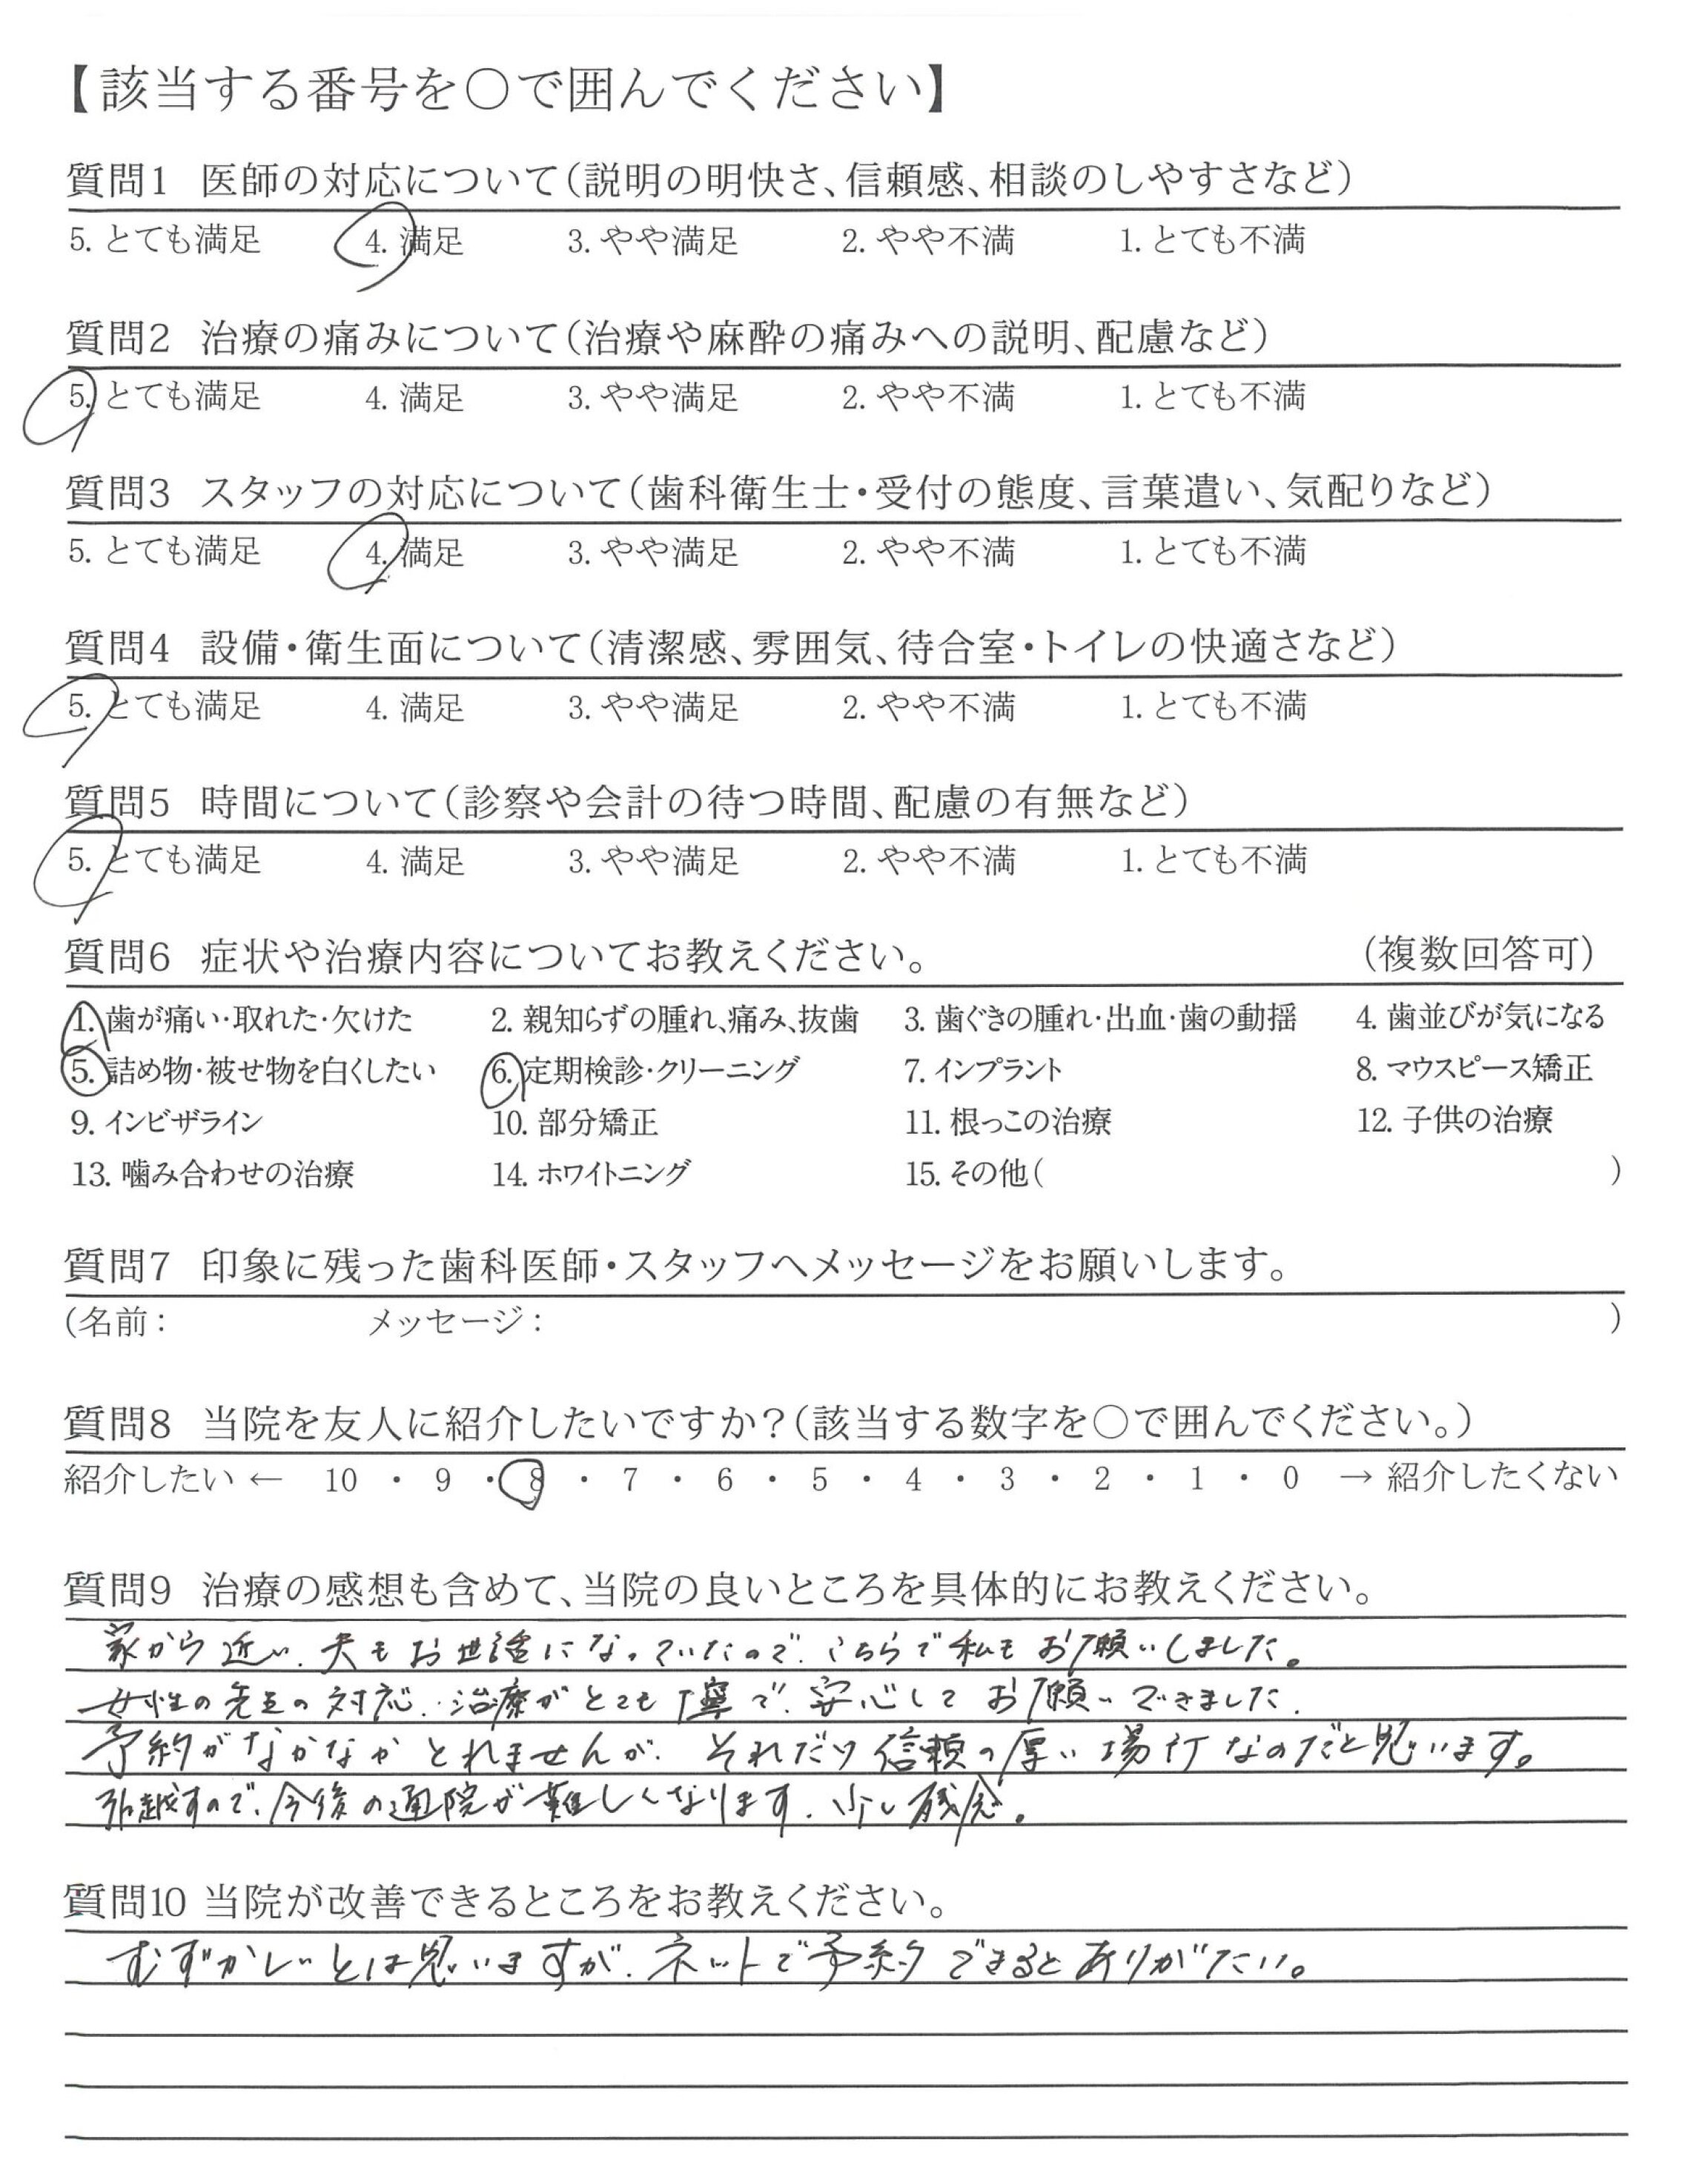 【該当する番号を○で囲んでください】
質問1 医師の対応について(説明の明快さ、信頼感、相談のしやすさなど)
5. とても満足 4. 満足 3. やや満足 2. やや不満 1. とても不満
質問2 治療の痛みについて(治療や麻酔の痛みへの説明、配慮など)
5. とても満足 4. 満足 3. やや満足 2. やや不満 1. とても不満
質問3 スタッフの対応について(歯科衛生士・受付の態度、言葉遣い、気配りなど)
5. とても満足 4. 満足 3. やや満足 2. やや不満 1. とても不満
質問4 設備・衛生面について(清潔感、雰囲気、待合室・トイレの快適さなど)
5. とても満足 4. 満足 3. やや満足 2. やや不満 1. とても不満
質問5 時間について(診察や会計の待つ時間、配慮の有無など)
5. とても満足 4. 満足 3. やや満足 2. やや不満 1. とても不満
質問6 症状や治療内容についてお教えください。 (複数回答可)
1. 歯が痛い・取れた・欠けた 2. 親知らずの腫れ、痛み、抜歯 3. 歯ぐきの腫れ・出血・歯の動揺 4. 歯並びが気になる
5. 詰め物・被せ物を白くしたい 6. 定期検診・クリーニング 7. インプラント 8. マウスピース矯正
9. インビザライン 10. 部分矯正 11. 根っこの治療 12. 子供の治療
13. 噛み合わせの治療 14. ホワイトニング 15. その他( )
質問7 印象に残った歯科医師・スタッフへメッセージをお願いします。
(名前: メッセージ: )
質問8 当院を友人に紹介したいですか?(該当する数字を○で囲んでください。)
紹介したい ← 10 ・ 9 ・ 8 ・ 7 ・ 6 ・ 5 ・ 4 ・ 3 ・ 2 ・ 1 ・ 0 → 紹介したくない
質問9 治療の感想も含めて、当院の良いところを具体的にお教えください。
家から近い、夫もお世話になっていたので、こちらで私もお願いしました。
女性の先生の対応、治療がとても丁寧で、安心してお願いできました。
予約がなかなかとれませんが、それだけ信頼の厚い場所なのだと思います。
引越すので、今後の通院が難しくなります。少し残念。
質問10 当院が改善できるところをお教えください。
むずかしいとは思いますが、ネットで予約できるとありがたい。